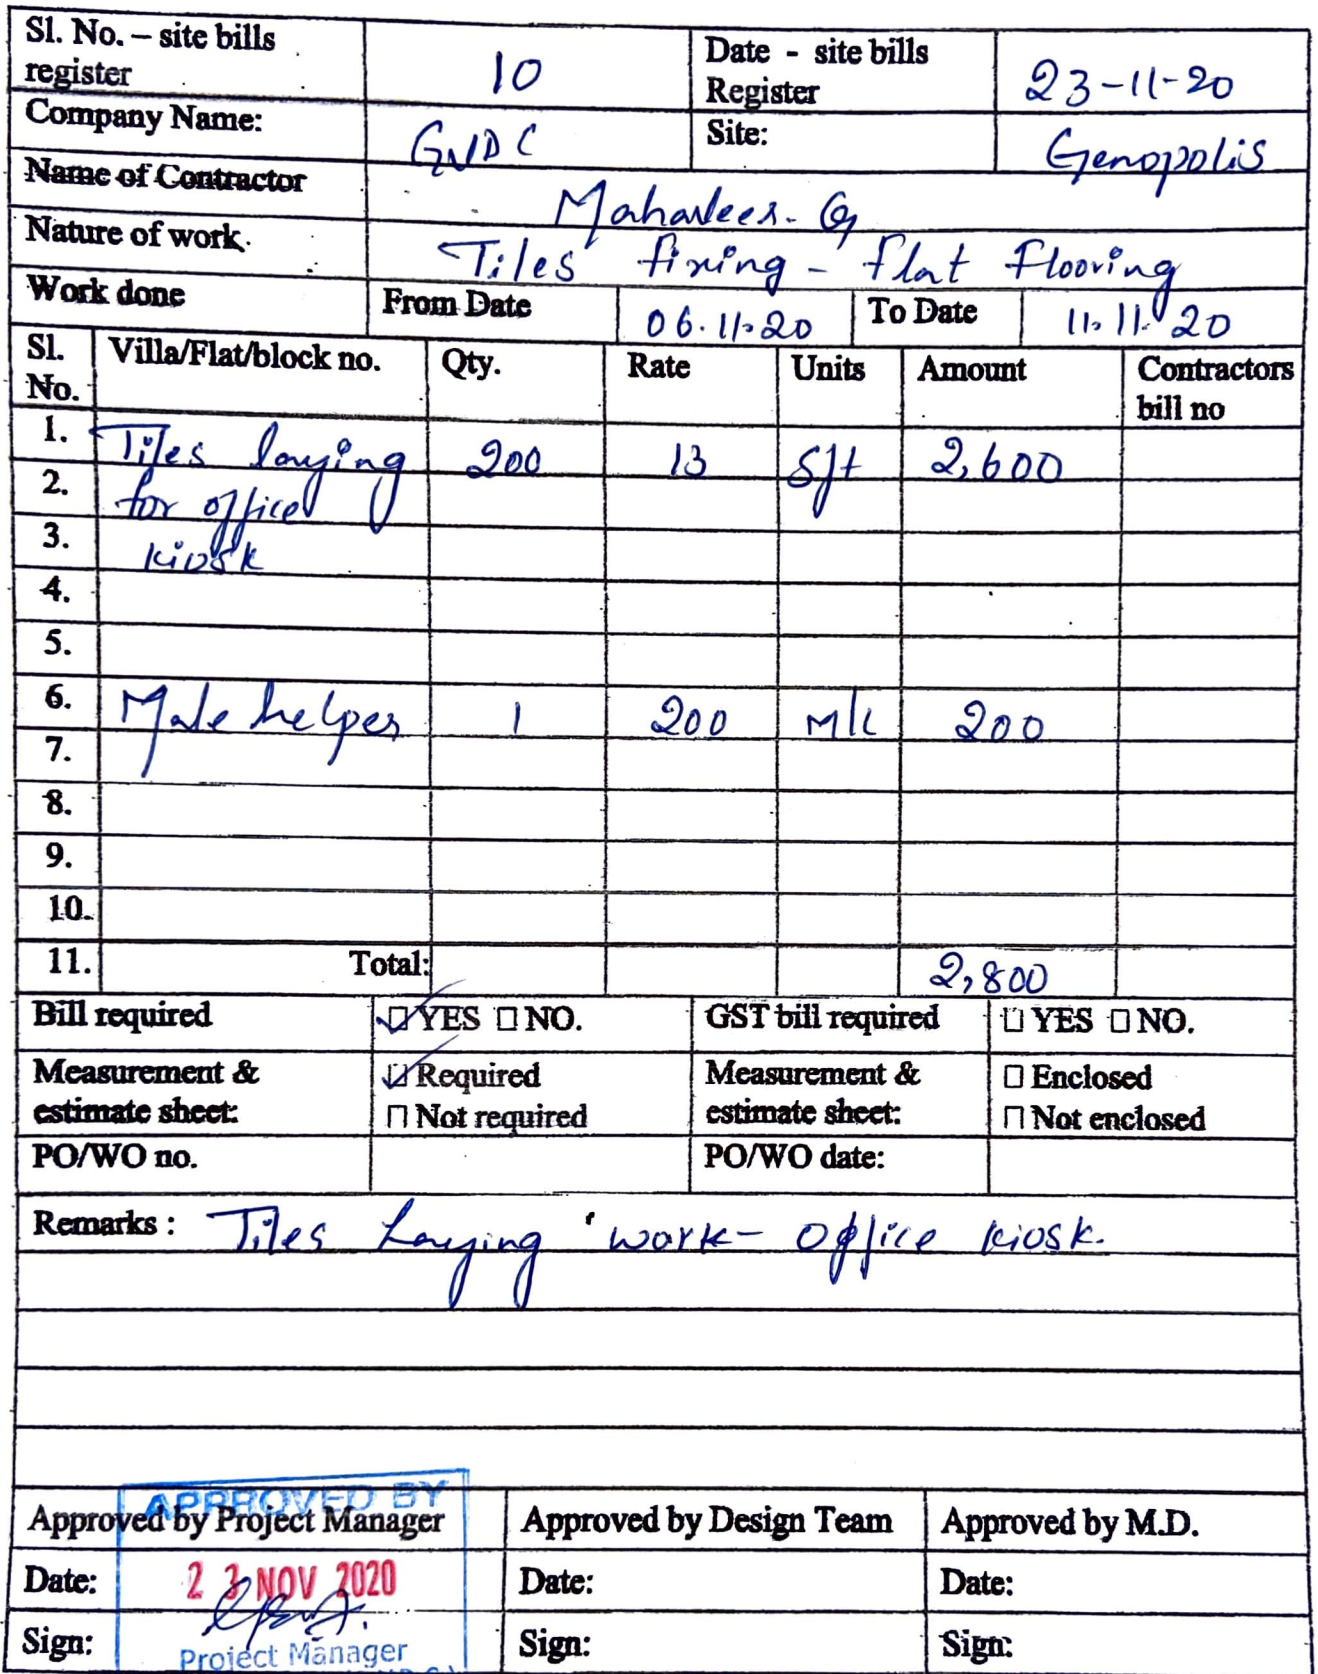 Sl. No. – site bills register 10 Date - site bills Register 23-11-20
Company Name: GVDC Site: Genopolis
Name of Contractor Mahaveer. G
Nature of work. Tiles fixing - Flat Flooring
Work done From Date 06.11.20 To Date 11.11.20
Sl. No. Villa/Flat/block no. Qty. Rate Units Amount Contractors bill no
1. Tiles laying 200 13 Sft 2,600
2. for office
3. kiosk
4.
5.
6. Male helper 1 200 200
7.
8.
9.
10.
11. Total: 2,800
Bill required ☑ YES ☐ NO. GST bill required ☐ YES ☐ NO.
Measurement & estimate sheet: ☑ Required ☐ Not required Measurement & estimate sheet: ☐ Enclosed ☐ Not enclosed
PO/WO no. PO/WO date:
Remarks : Tiles Laying work - office kiosk.
APPROVED BY
Approved by Project Manager Approved by Design Team Approved by M.D.
Date: 23 NOV 2020 Date: Date:
Sign: Project Manager Sign: Sign: